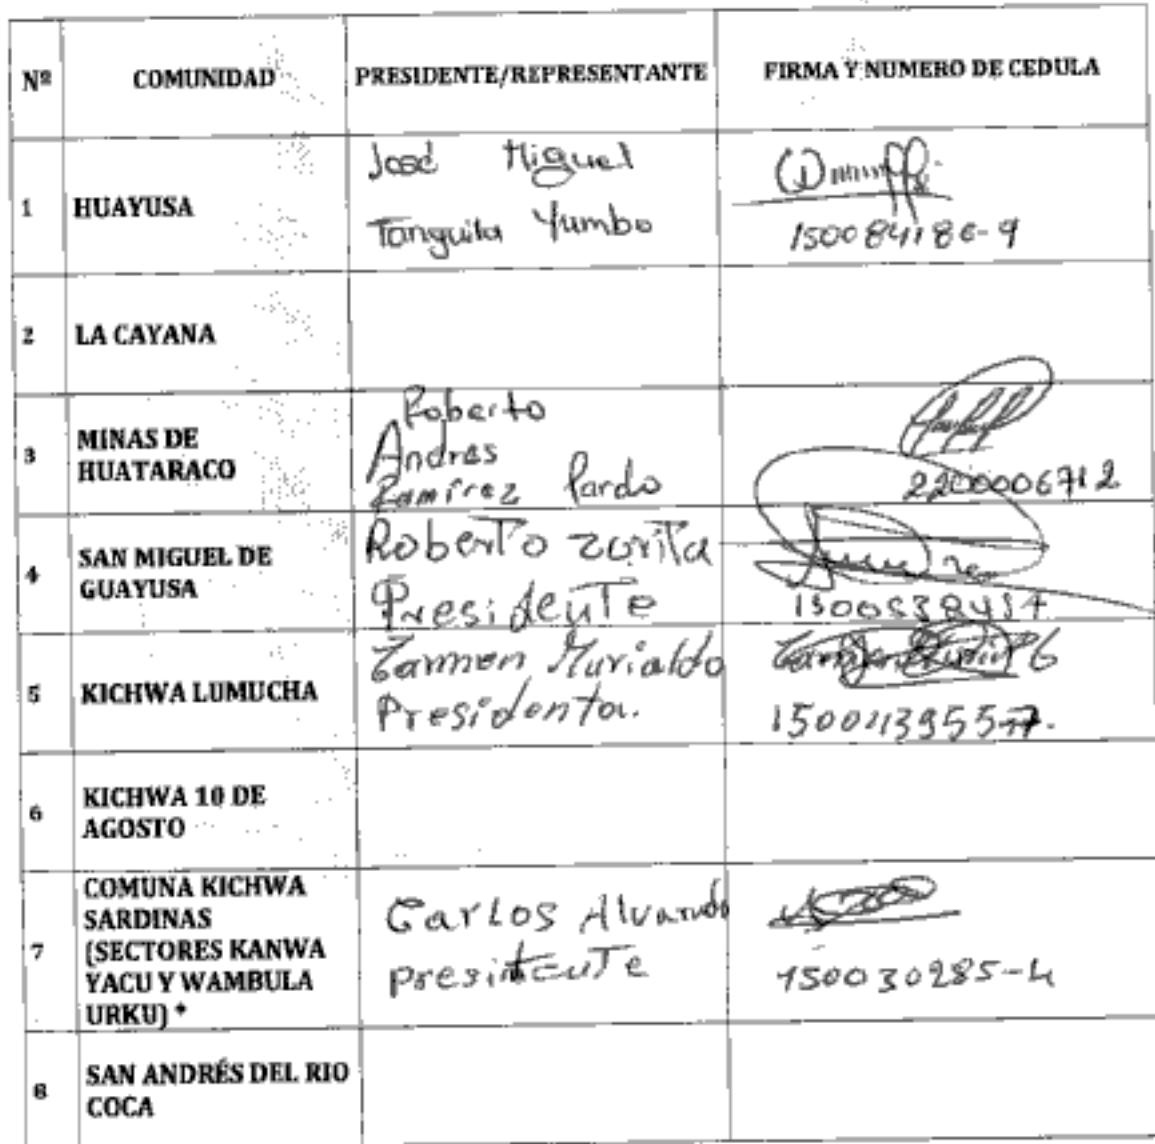 Nº COMUNIDAD PRESIDENTE/REPRESENTANTE FIRMA Y NUMERO DE CEDULA
1 HUAYUSA
José Miguel
Tanguila Yumbo
150084186-9
2 LA CAYANA
3 MINAS DE
HUATARACO
Roberto
Andres
Ramírez Pardo
2200006712
4 SAN MIGUEL DE
GUAYUSA
Roberto zorita
Presidente
5 KICHWA LUMUCHA
Carmen Murialdo
Presidenta.
6 KICHWA 10 DE
AGOSTO
7 COMUNA KICHWA
SARDINAS
(SECTORES KANWA
YACU Y WAMBULA
URKU) *
Carlos Alvarado
presidente
150030285-4
8 SAN ANDRÉS DEL RIO
COCA